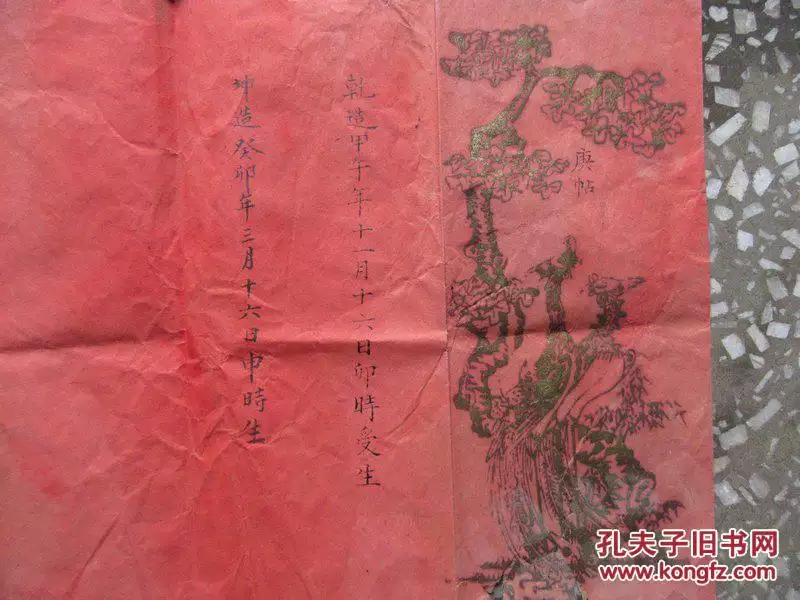 庚帖
乾造甲午年十一月十六日卯時受生
坤造癸卯年三月十六日申時生
孔夫子旧书网
www.kongfz.com